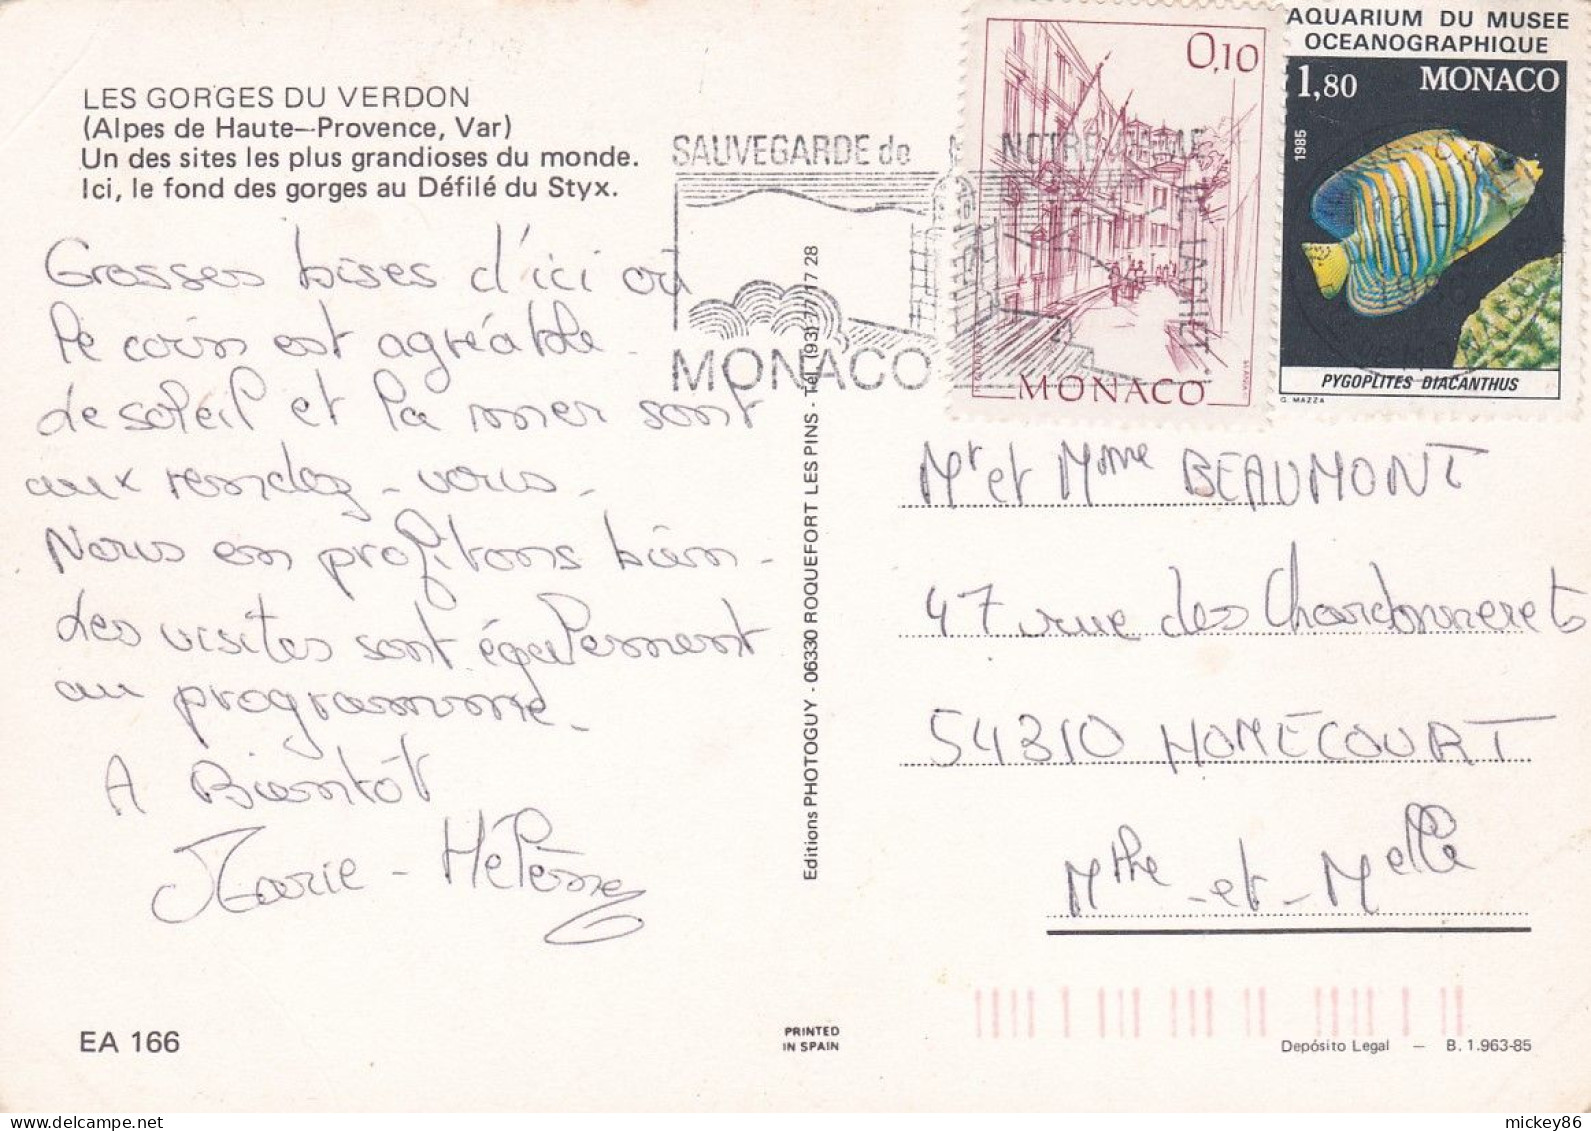 LES GORGES DU VERDON
(Alpes de Haute-Provence, Var)
Un des sites les plus grandioses du monde.
Ici, le fond des gorges au Défilé du Styx.
Grosses bises d'ici où
le coin est agréable.
Le soleil et la mer sont
aux rendez-vous.
Nous en profitons bien.
Les visites sont également
au programme.
A Bientôt
Marie-Hélène
EA 166
SAUVEGARDE de NOTRE DAME
DE LAGHET
MONACO
0,10
MONACO
AQUARIUM DU MUSEE
OCEANOGRAPHIQUE
1,80 MONACO
1985
PYGOPLITES DIACANTHUS
G. MAZZA
Editions PHOTOGUY - 06330 ROQUEFORT LES PINS - Tél. (93) 77 17 28
Mr et Mme BEAUMONT
47 rue des Chardonnerets
54310 HOMECOURT
Mthe-et-Melle
PRINTED
IN SPAIN
Depósito Legal - B. 1.963-85
mickey86